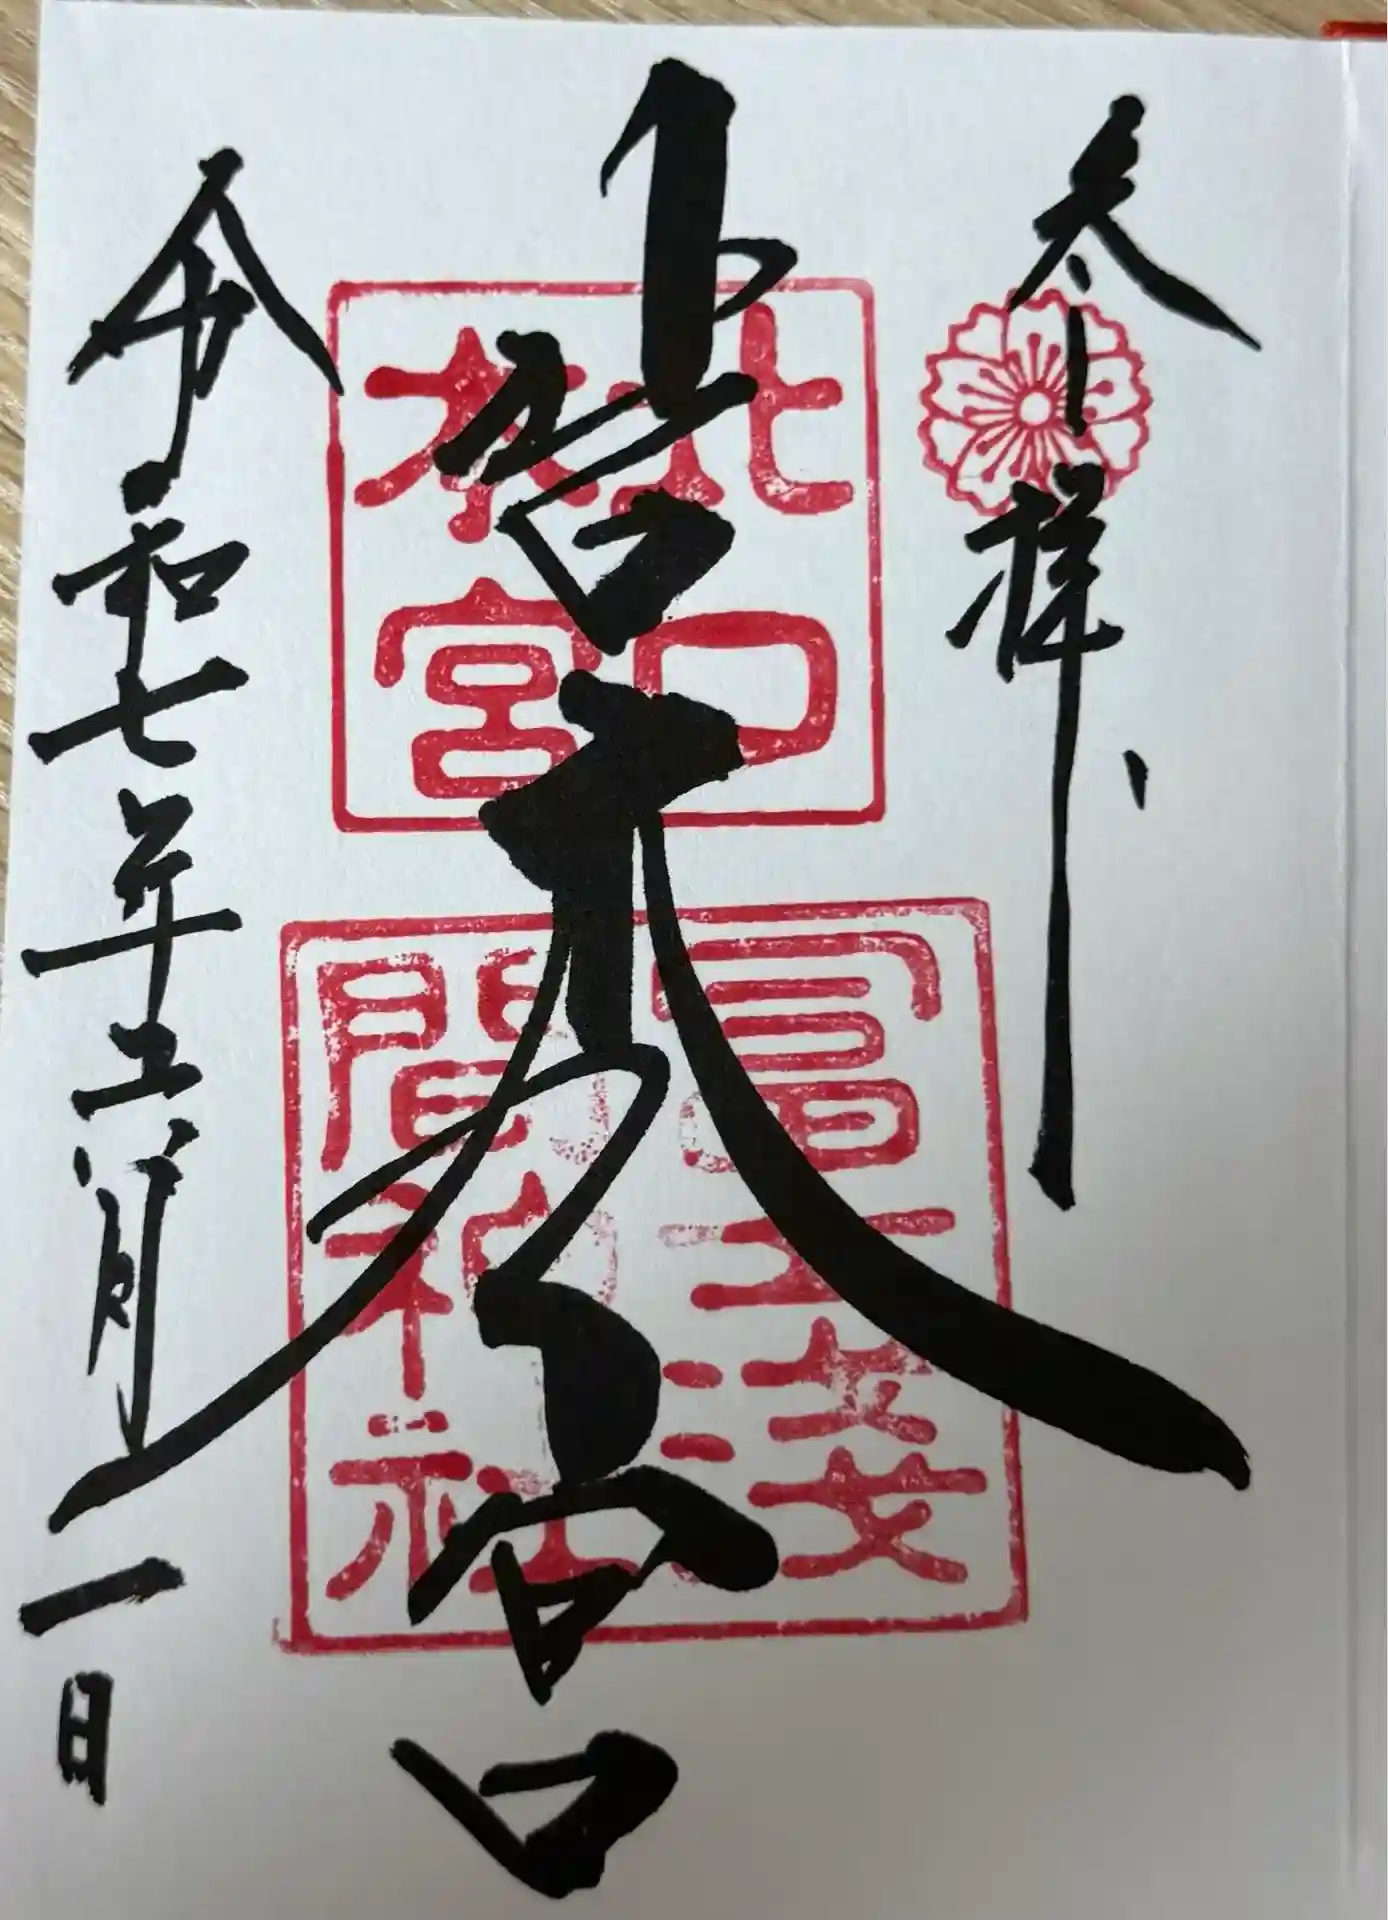 参拝
北口
本宮
冨士淺
間神社
北口本宮
令和七年月一日